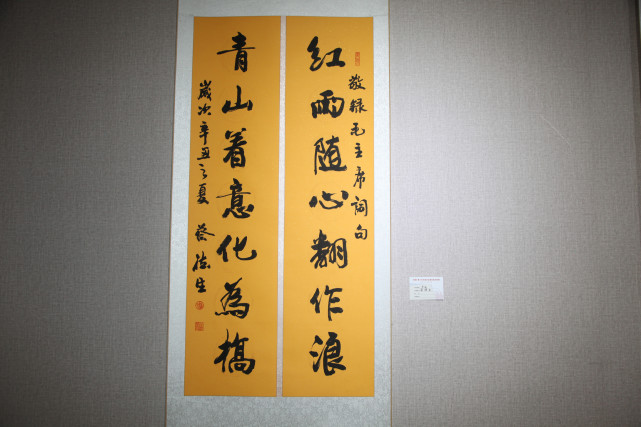 敬録毛主席詞句
红雨随心翻作浪
青山着意化為橋
歲次辛丑之夏 蔡德生